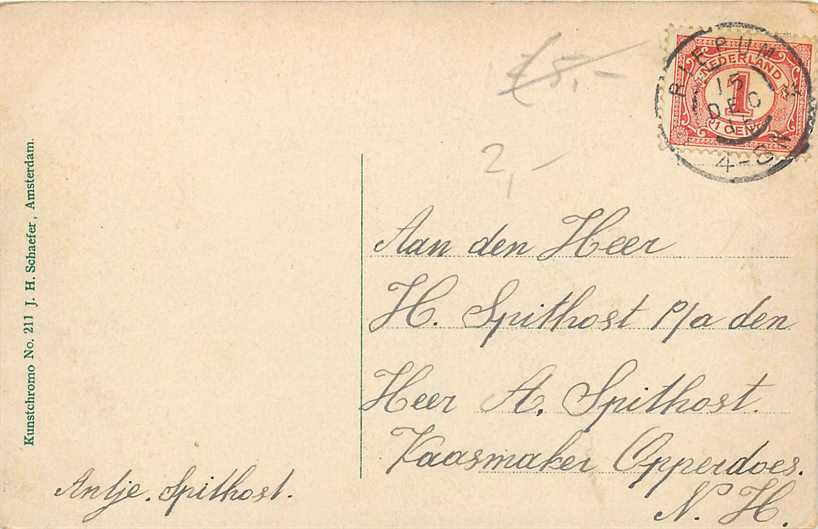 £5,-
2,-
NEDERLAND
1
1 CENT
15
DEC
4-8N
Aan den Heer
H. Spithost p/a den
Heer A. Spithost.
Kaasmaker Opperdoes.
N. H.
Antje. Spithost.
Kunstchromo No. 211 J. H. Schaefer, Amsterdam.